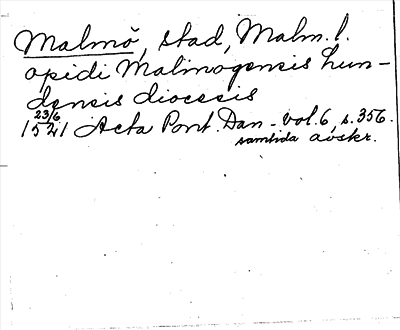 Malmö, stad, Malm. l.
opidi Malmogensis Lun-
densis diocesis
23/6
1521 Acta Pont. Dan. vol. 6, s. 356.
samtida avskr.